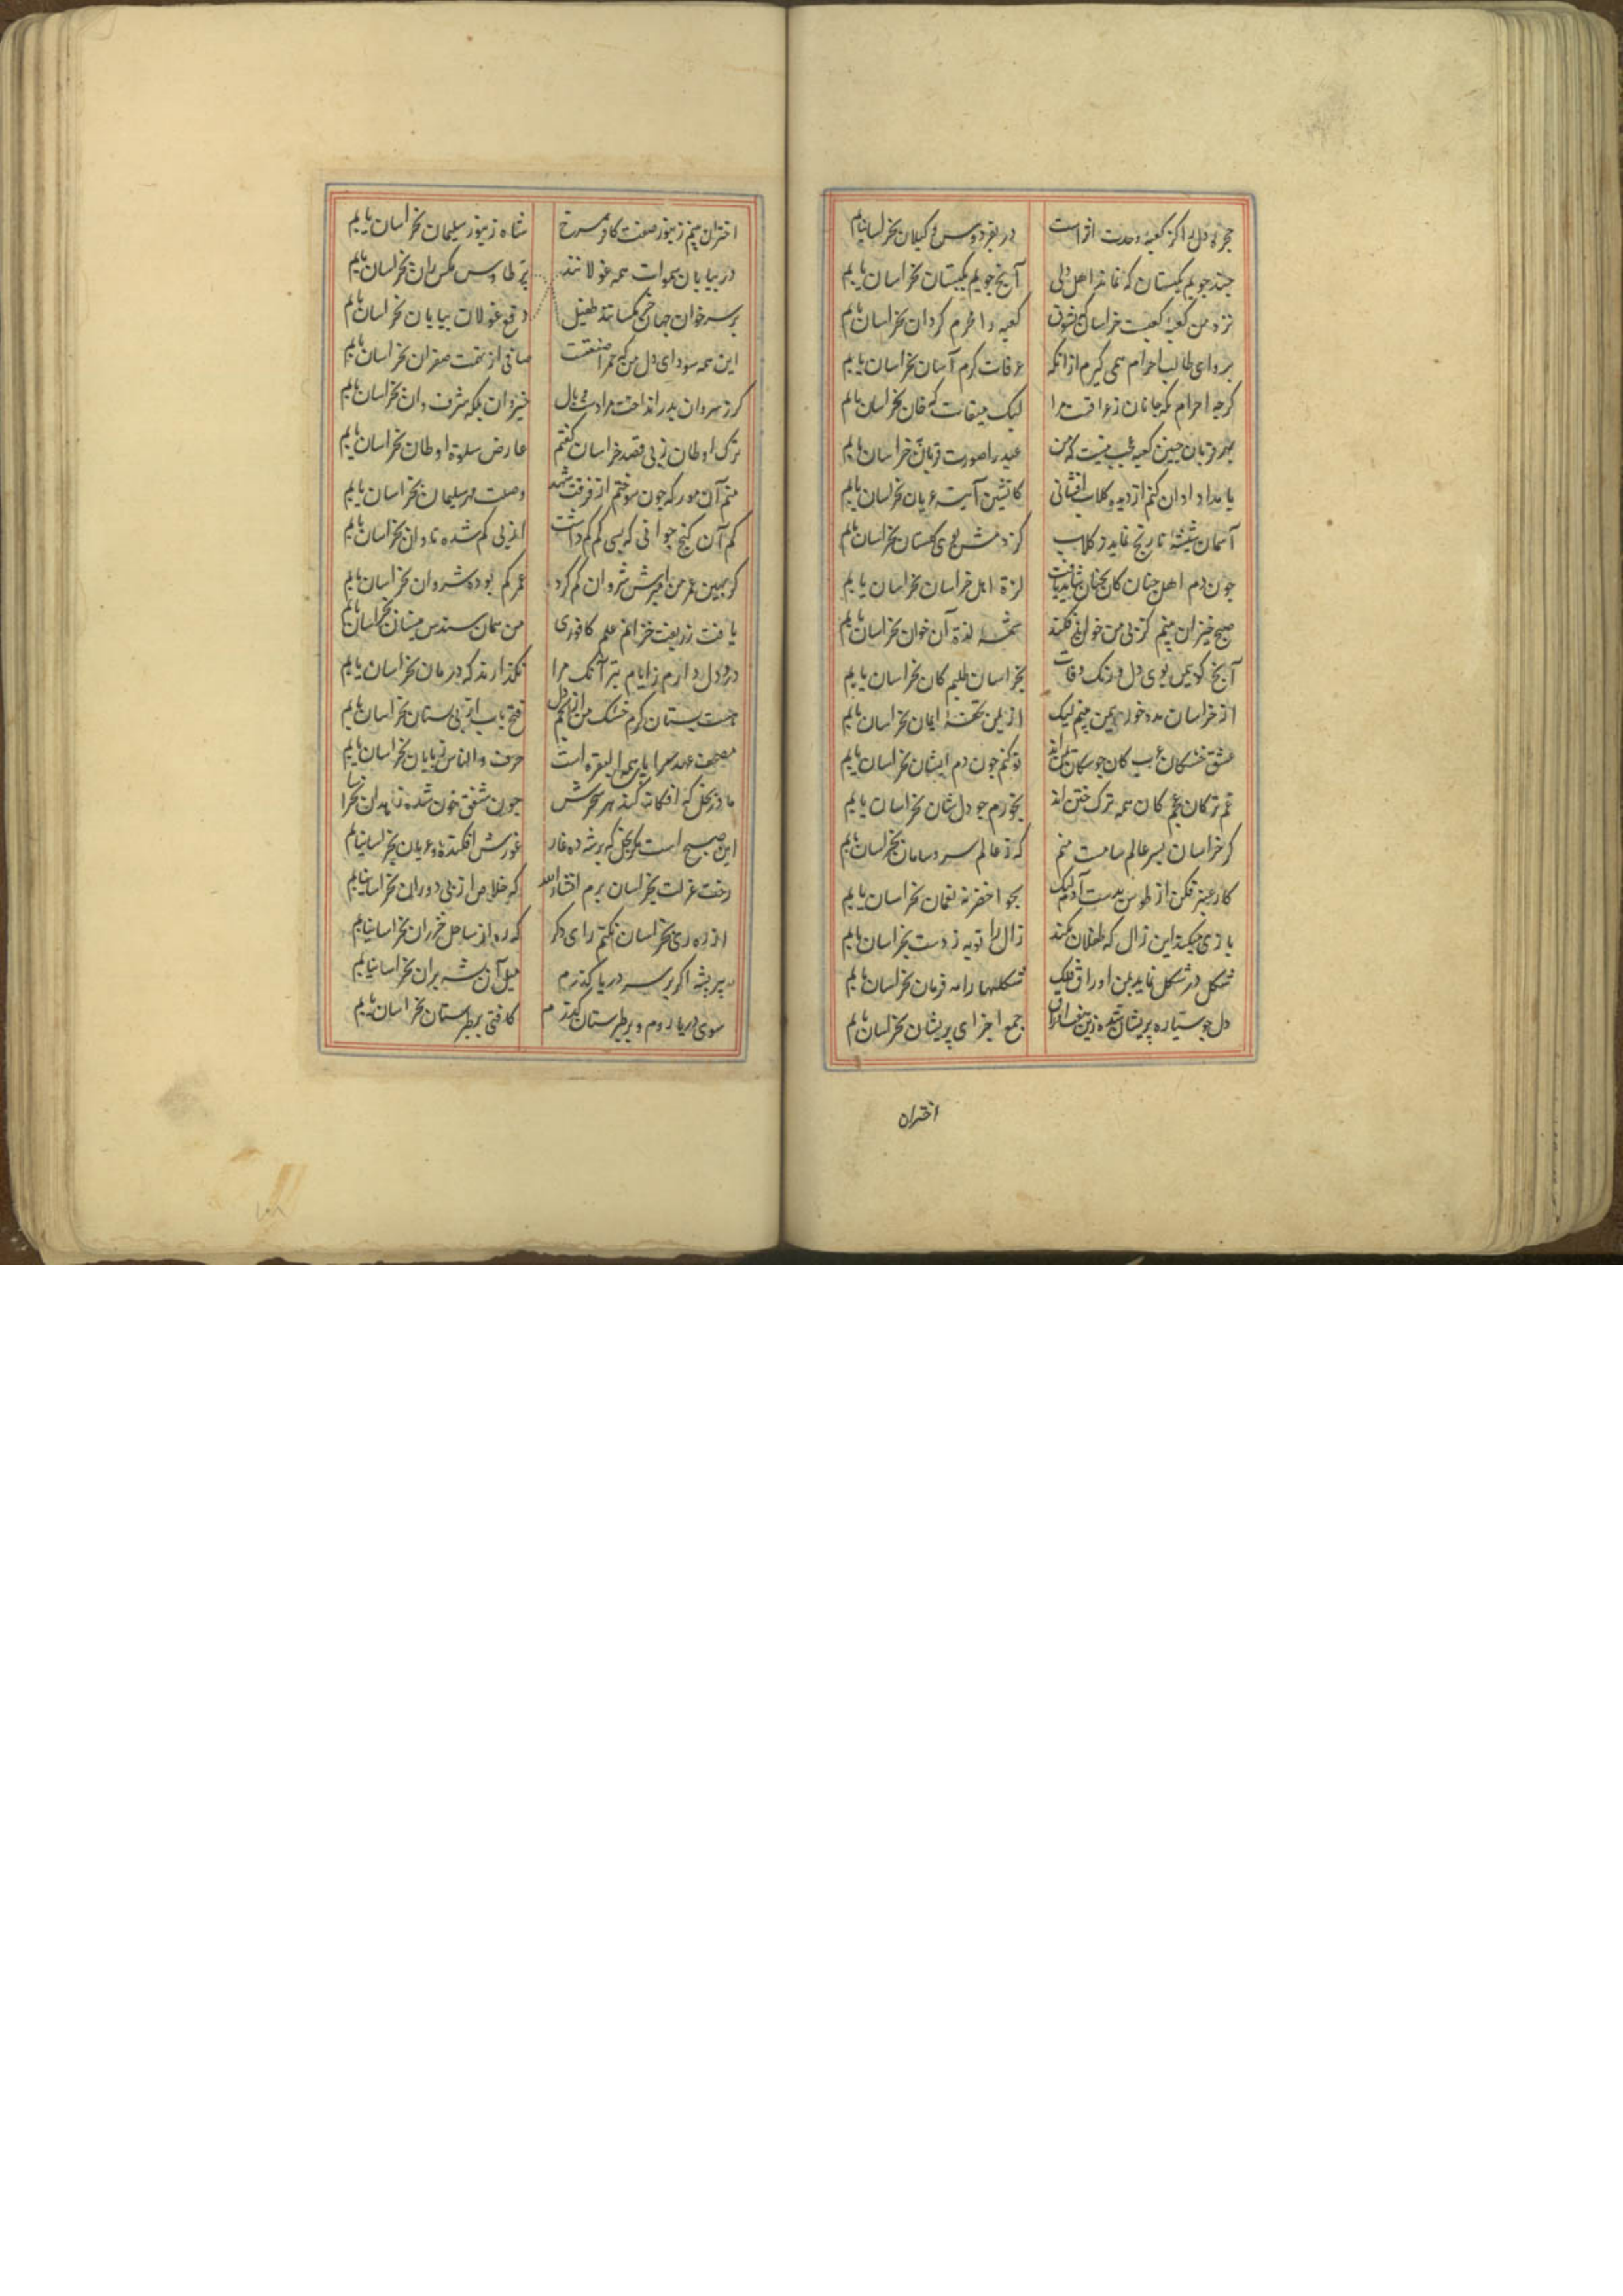 حجره دل را کز کعبه وحدت اثر است در بفردوس و کیلان بخراسانیابم
چند جویم بکهستان که نماند اهل دلی آنچ جویم بکهستان بخراسان یابم
نزد من کعبه کعبست خراسان کعبه را محرم کردان بخراسان یابم
بروای طالب احرام همی کیرم ازانکه عرفات کرم آسان بخراسان یابم
کرچه احرام بکه جانان ز عراقست مرا لیک میقات که خان بخراسان یابم
بهر قربان چنین کعبه عجب نیست که من عید را صورت قربان بخراسان یابم
بامدادان کنم از دیده کلاب افشانی کاتشین آینه عریان بخراسان یابم
آسمان شیشه نارنج نماید ز کلاب کز دمش بوی کهستان بخراسان یابم
چون دم اهل جنان کان بجنان شاید یافت لزة اهل خراسان بخراسان یابم
صبح خیزان بینم کز پی من خوان فکنند چشمه لذة آن خوان بخراسان یابم
آنچ کویمن بوی دل و رنک وفات بخراسان طلبم کان بخراسان یابم
از خراسان مدد خور بیمن بینم لیک از یمن تحفه ایمان بخراسان یابم
عشق خشکان عرب کان چو سکان نو کنم چون دم ایشان بخراسان یابم
غم ترکان عجم کان همه ترک ختن اند بخورم چو دل شان بخراسان یابم
کر خراسان بسر عالم سامست منم که ز عالم سر و سامان بخراسان یابم
کار عیبر فکن از طوس بدست آدم لیک بجو اخضر نعمان بخراسان یابم
بازی میکند این زال که طفلان نکنند زال را توبه ز دست بخراسان یابم
شکل در شکل نماید بمن اوراق فلک شکلها را مه فرمان بخراسان یابم
دل چو ستاره پریشان شده زین جمع اجزای پریشان بخراسان یابم
اختران
اختران بینم زنبور صفت کافر سرخ شاه زنبور سلیمان بخراسان یابم
در بیابان سموات همه غولانند پر طاوس مکس ران بخراسان یابم
بر سر خوان جهان مکسانند طفیل دفع غولان بیابان بخراسان یابم
این همه سودای دل من که صفتست صافی از تفت صفران بخراسان یابم
کرز شروان بدر انداخت مرا دست وبال خیروان بلکه شرفوان بخراسان یابم
ترک اوطان ز پی قصد خراسان کفتم عارض سلوة اوطان بخراسان یابم
منم آن مور که چون سوختم از فرقت شهد وصلت مهر سلیمان بخراسان یابم
کم آن کنج جوانی که بسی کم کم داشت از پی کم شده تاوان بخراسان یابم
کر بهین عمر من شروان کم کرد عمر کم بوده شروان بخراسان یابم
یافت زربفت خزانم علم کافوری من همان سندس نیسان بخراسان یابم
درد دل دارم از ایام بتر آنک مرا نکذارند که درمان بخراسان یابم
هست بستان کرم خشک من فتح باب از پی بستان بخراسان یابم
مصحف عهد سراپای همه البقره است حرف والناس ز پایان بخراسان یابم
مادر نخل که افکانه کند هر سحرش چون شفق خون شده زهدان بخراسا
این صبیح است مکر نخل که برشه ده غار عورش افکنده و عریان بخراسانیابم
رخت عزلت بخراسان برم انشاءالله که خلاص از پی دوران بخراسانیابم
از ره ری بخراسان نکنم رای دکر که ره از ساحل خزران بخراسانیابم
پشه اکر بر سر دریا کذرم میل آن شه بران بخراسانیابم
سوی دریا روم و بر طبرستان کذرم کافتی بطبرستان بخراسان یابم